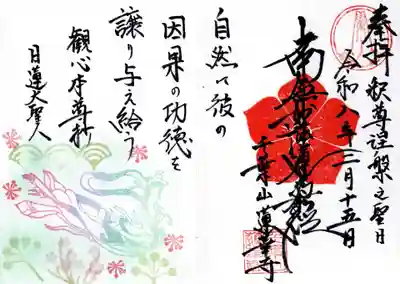 奉拝 釈尊涅槃之聖日
令和八年二月十五日
南無妙法蓮華経
千葉山蓮華寺
自然に彼の
因果の功徳を
譲り与え給う
観心本尊抄
日蓮大聖人